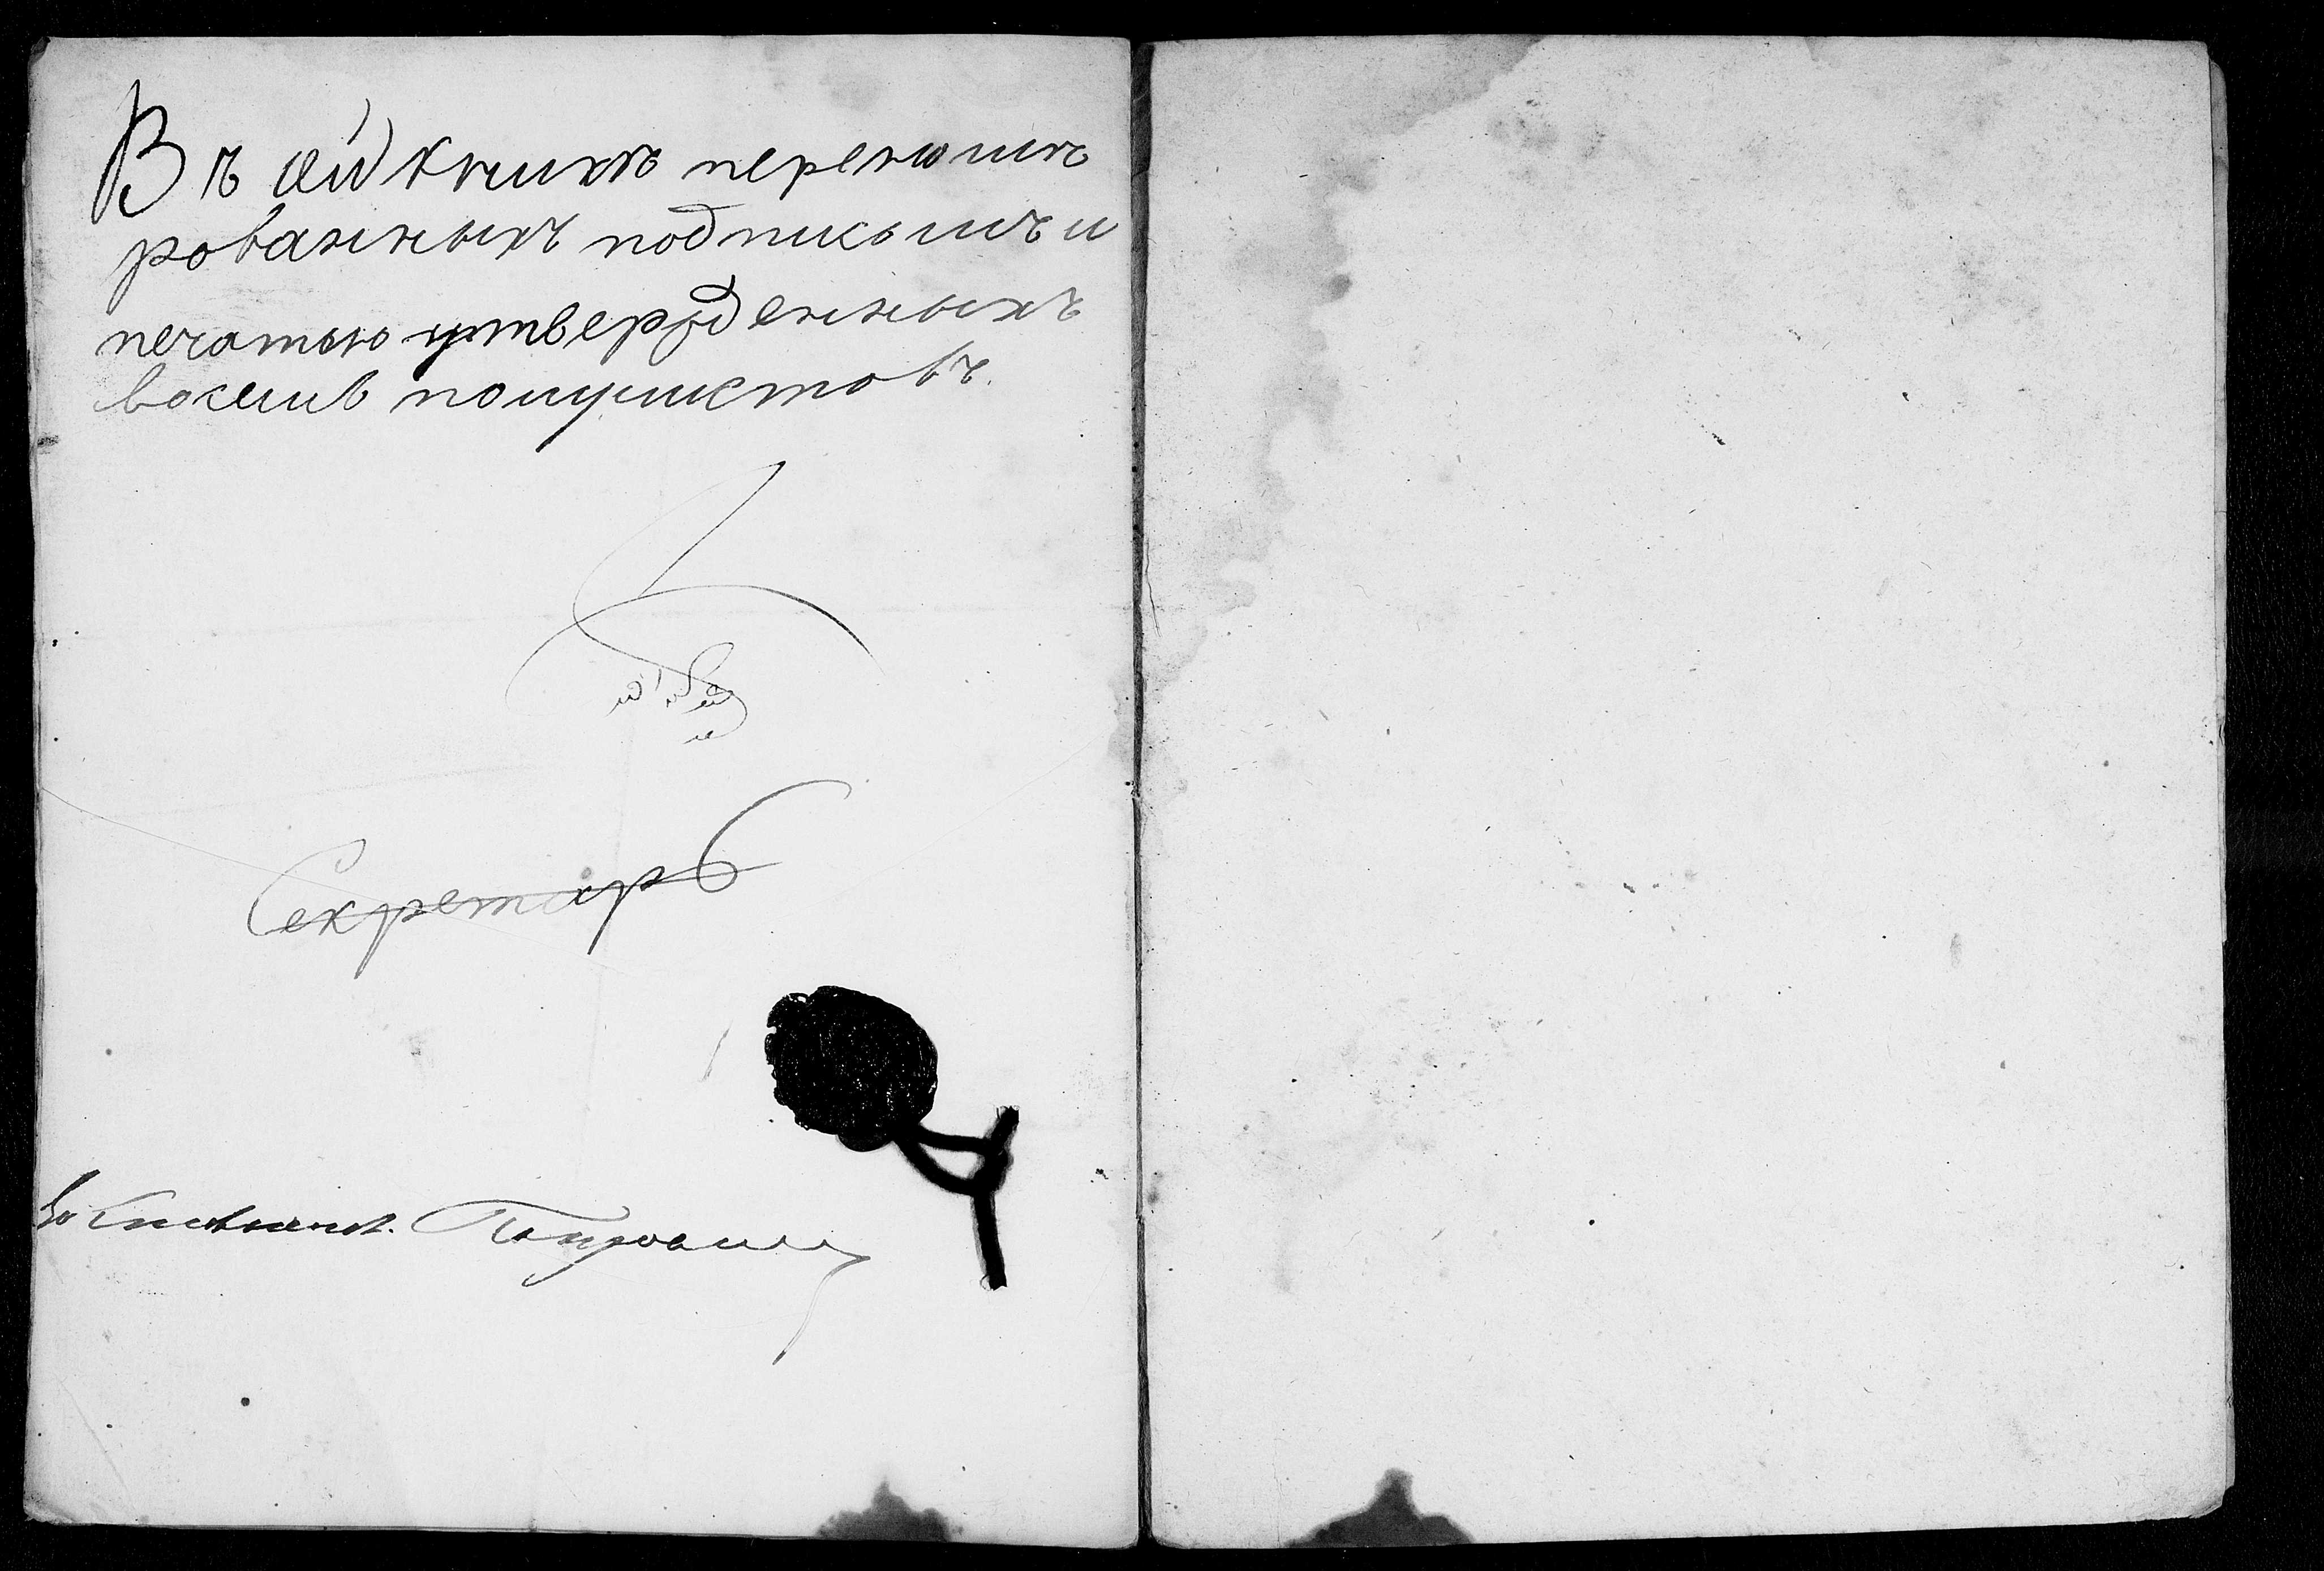 Въ сей книгѣ перенумѣ
рованныхъ подписомъ и
печатью утвержденныхъ
восемь полулистовъ.
Секретарь